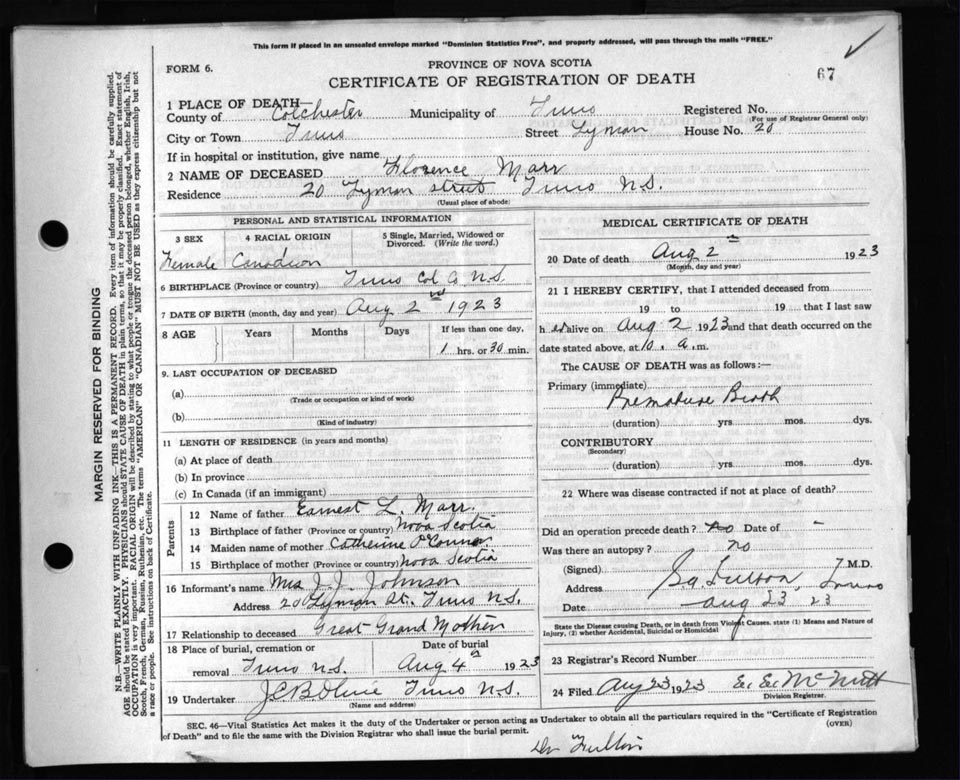 This form if placed in an unsealed envelope marked "Dominion Statistics Free", and properly addressed, will pass through the mails "FREE."
FORM 6.
PROVINCE OF NOVA SCOTIA
67
CERTIFICATE OF REGISTRATION OF DEATH
1 PLACE OF DEATH—
County of Colchester Municipality of Truro Registered No.
(For use of Registrar General only)
City or Town Truro Street Lyman House No. 20
If in hospital or institution, give name
2 NAME OF DECEASED Florence Marr
Residence 20 Lyman street Truro N.S.
(Usual place of abode)
PERSONAL AND STATISTICAL INFORMATION
3 SEX 4 RACIAL ORIGIN 5 Single, Married, Widowed or Divorced. (Write the word.)
Female Canadian
6 BIRTHPLACE (Province or country) Truro Col Co N.S.
7 DATE OF BIRTH (month, day and year) Aug 2nd 1923
8 AGE Years Months Days If less than one day,
1 hrs. or 30 min.
9. LAST OCCUPATION OF DECEASED
(a)
(Trade or occupation or kind of work)
(b)
(Kind of industry)
11 LENGTH OF RESIDENCE (in years and months)
(a) At place of death
(b) In province
(c) In Canada (if an immigrant)
Parents
12 Name of father Earnest L. Marr.
13 Birthplace of father (Province or country) Nova Scotia
14 Maiden name of mother Catherine O'Connor
15 Birthplace of mother (Province or country) Nova Scotia
16 Informant's name Mrs J. J. Johnson
Address 20 Lyman St. Truro N.S.
17 Relationship to deceased Great Grand Mother
18 Place of burial, cremation or removal Truro N.S. Date of burial Aug 4 1923
19 Undertaker Truro N.S.
(Name and address)
MEDICAL CERTIFICATE OF DEATH
20 Date of death Aug 2 1923
(Month, day and year)
21 I HEREBY CERTIFY, that I attended deceased from
19 to 19 that I last saw
h er alive on Aug 2 1923 and that death occurred on the
date stated above, at 10. a. m.
The CAUSE OF DEATH was as follows:—
Primary (immediate)
Premature Birth
(duration) yrs. mos. dys.
CONTRIBUTORY
(Secondary)
(duration) yrs. mos. dys.
22 Where was disease contracted if not at place of death?
Did an operation precede death? no Date of -
Was there an autopsy? no
(Signed) Fulton M.D.
Address Truro
Date Aug 23, 23
State the Disease causing Death, or in death from Violent Causes, state (1) Means and Nature of Injury, (2) whether Accidental, Suicidal or Homicidal
23 Registrar's Record Number
24 Filed Aug 23 1923 McNutt
Division Registrar.
SEC. 46—Vital Statistics Act makes it the duty of the Undertaker or person acting as Undertaker to obtain all the particulars required in the "Certificate of Registration
of Death" and to file the same with the Division Registrar who shall issue the burial permit.
(OVER)
Dr Fulton
MARGIN RESERVED FOR BINDING
N.B.—WRITE PLAINLY WITH UNFADING INK—THIS IS A PERMANENT RECORD. Every item of information should be carefully supplied.
AGE should be stated EXACTLY. PHYSICIANS should STATE CAUSE OF DEATH in plain terms, so that it may be properly classified. Exact statement of
OCCUPATION is very important. RACIAL ORIGIN will be described by stating to what people or tongue the deceased person belonged, whether English, Irish,
Scotch, French, German, Russian, Ruthenian, etc. The terms "AMERICAN" or "CANADIAN" MUST NOT BE USED as they express citizenship but not
a race or people. See instructions on back of Certificate.